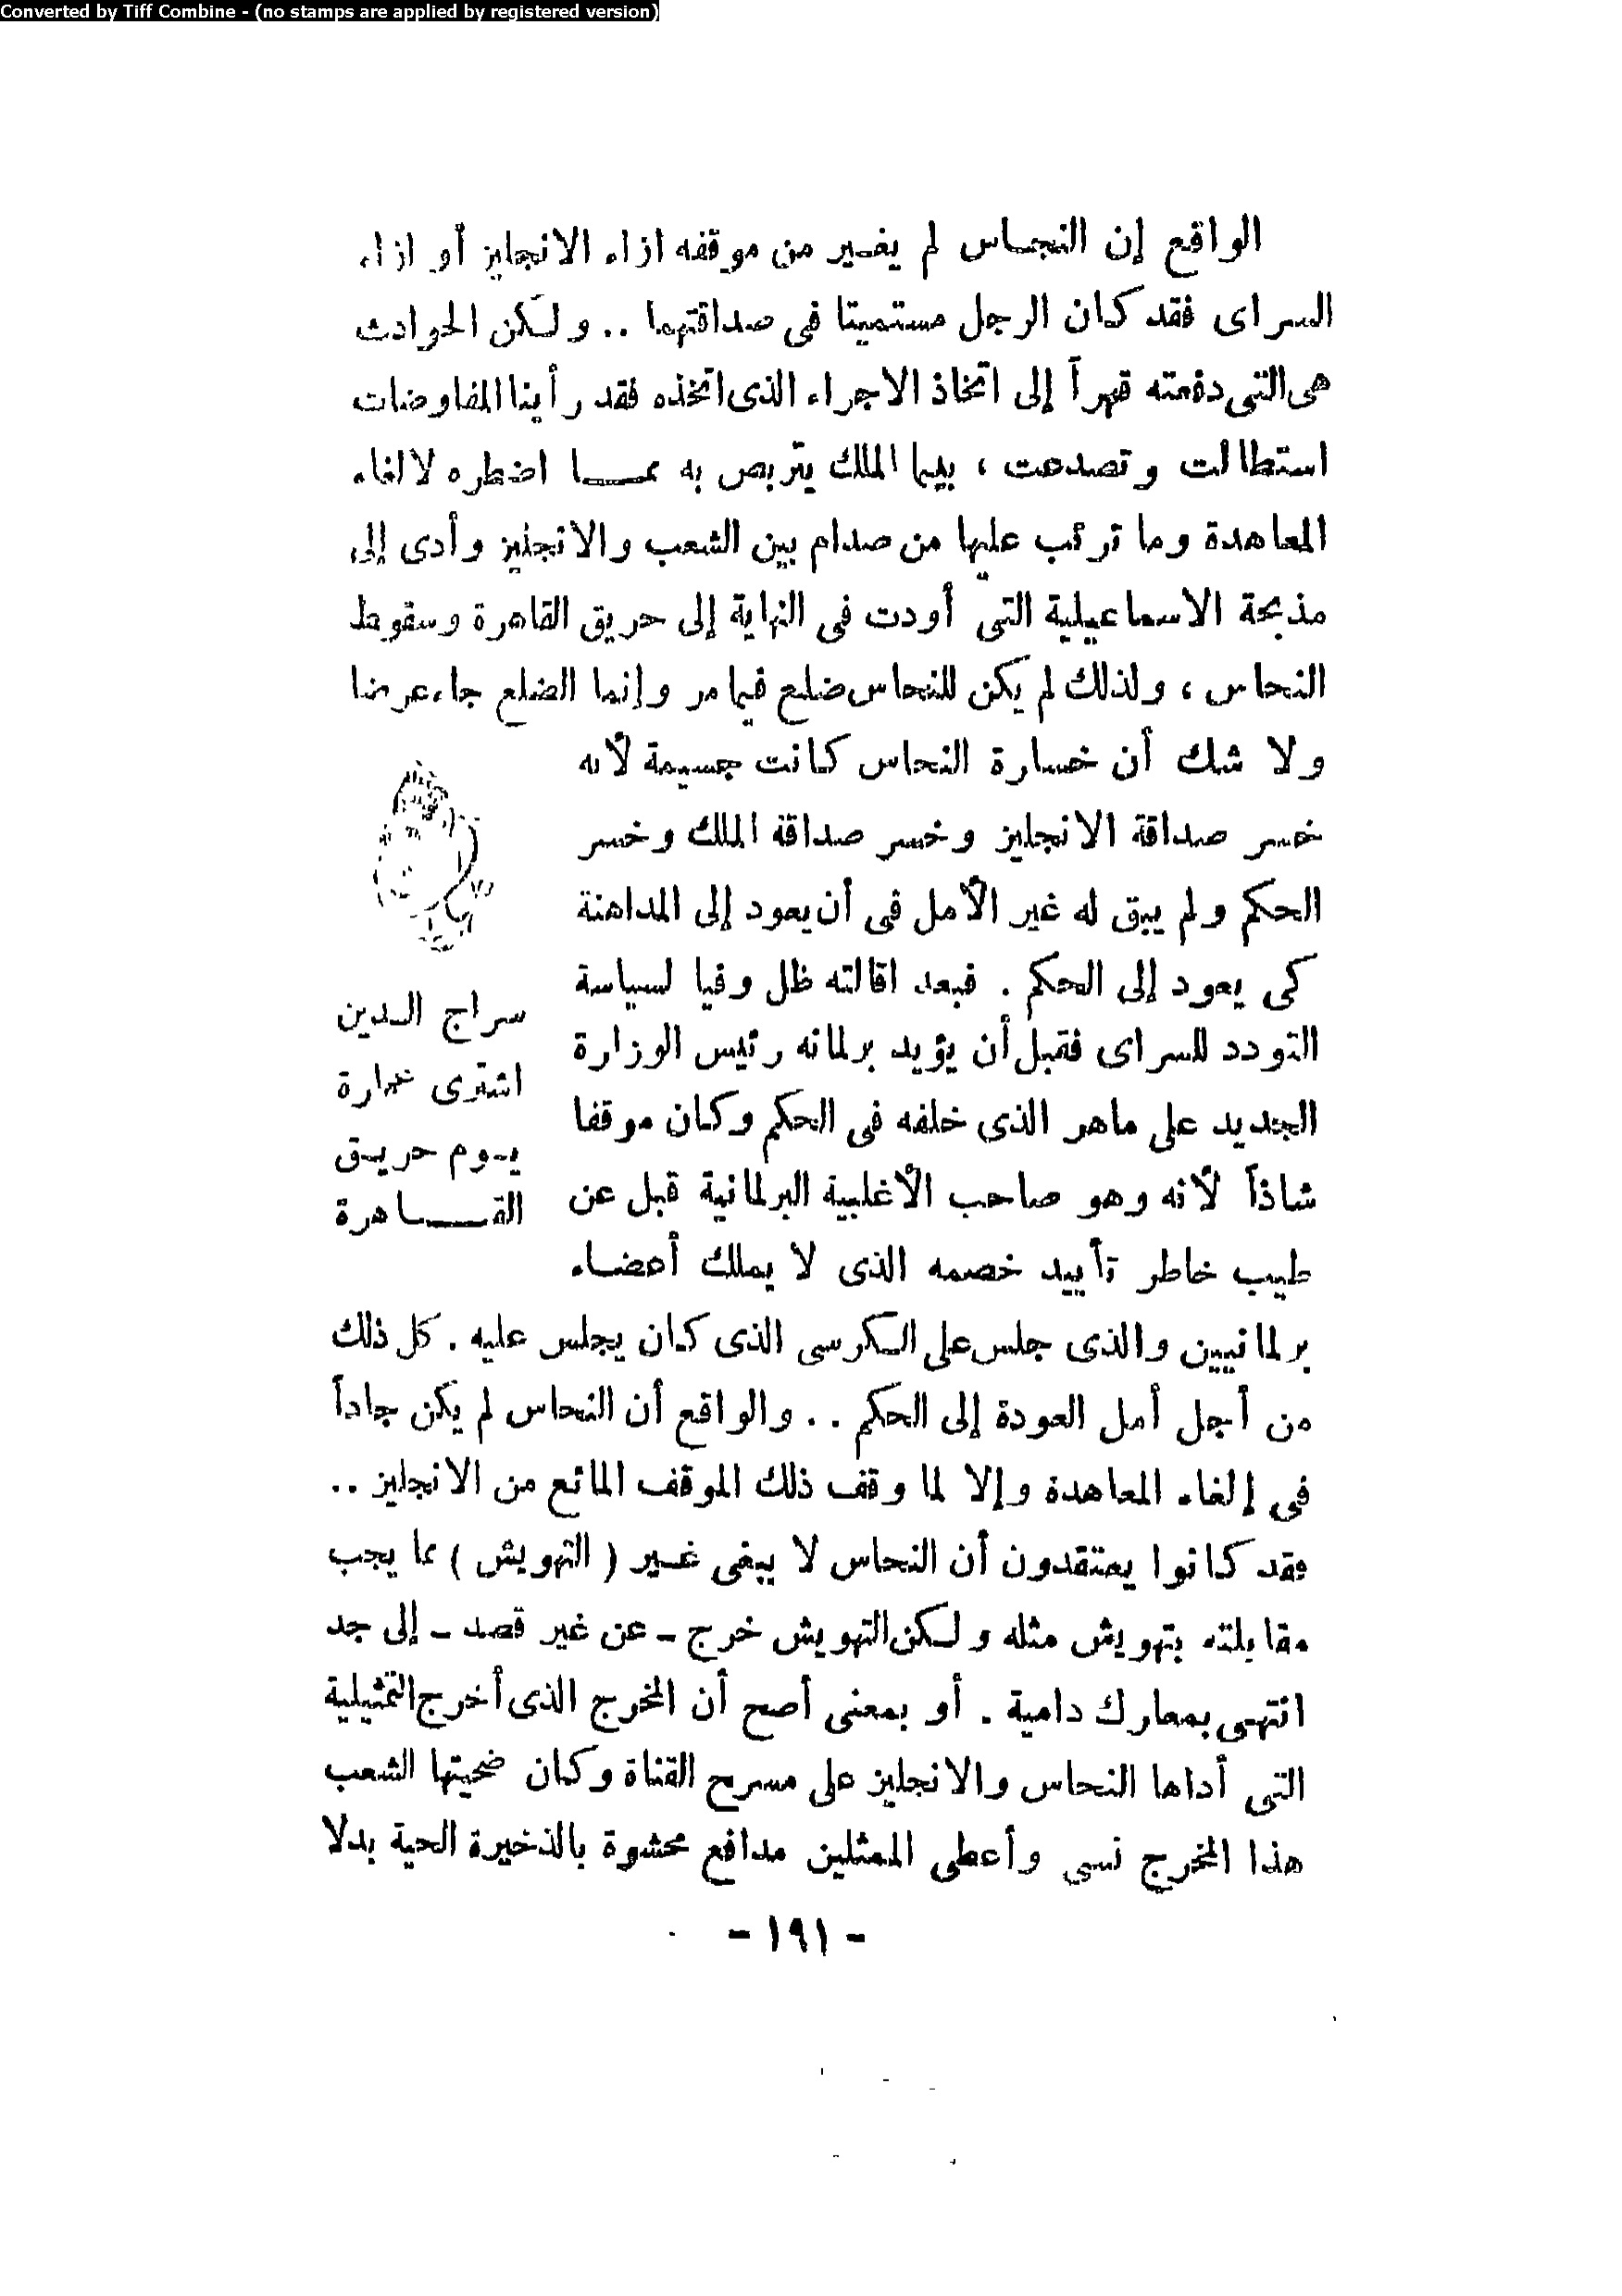 Converted by Tiff Combine - (no stamps are applied by registered version)
الواقع إن النحاس لم يغير من موقفه ازاء الانجليز أو ازاء
السراى فقد كان الرجل مستميتا فى صداقتهما .. ولكن الحوادث
هى التى دفعته قهراً إلى اتخاذ الاجراء الذى اتخذه فقد رأينا المفاوضات
استطالت وتصدعت ، بينما الملك يتربص به مما اضطره لالغاء
المعاهدة وما ترتب عليها من صدام بين الشعب والانجليز وأدى إلى
مذبحة الاسماعيلية التى أودت فى النهاية إلى حريق القاهرة وسقوط
النحاس ، ولذلك لم يكن للنحاس ضلع فيما مر وإنما الضلع جاء عرضا
ولا شك أن خسارة النحاس كانت جسيمة لأنه
خسر صداقة الانجليز وخسر صداقة الملك وخسر
الحكم ولم يبق له غير الأمل فى أن يعود إلى المداهنة
كى يعود إلى الحكم . فبعد اقالته ظل وفيا لسياسة
التودد للسراى فقبل أن يؤيد برلمانه رئيس الوزارة
الجديد على ماهر الذى خلفه فى الحكم وكان موقفا
شاذاً لأنه وهو صاحب الأغلبية البرلمانية قبل عن
طيب خاطر تأييد خصمه الذى لا يملك أعضاء
سراج الدين
اشترى عمارة
يوم حريق
القاهرة
برلمانيين والذى جلس على الكرسى الذى كان يجلس عليه . كل ذلك
من أجل أمل العودة إلى الحكم .. والواقع أن النحاس لم يكن جاداً
فى إلغاء المعاهدة وإلا لما وقف ذلك الموقف المائع من الانجليز ..
فقد كانوا يعتقدون أن النحاس لا يبغى غير ( التهويش ) مما يجب
مقابلته بتهويش مثله ولكن التهويش خرج - عن غير قصد - إلى جد
انتهى بمعارك دامية . أو بمعنى أصح أن المخرج الذى أخرج التمثيلية
التى أداها النحاس والانجليز على مسرح القناة وكان ضحيتها الشعب
هذا المخرج نسى وأعطى الممثلين مدافع محشوة بالذخيرة الحية بدلا
- ١٩١ -